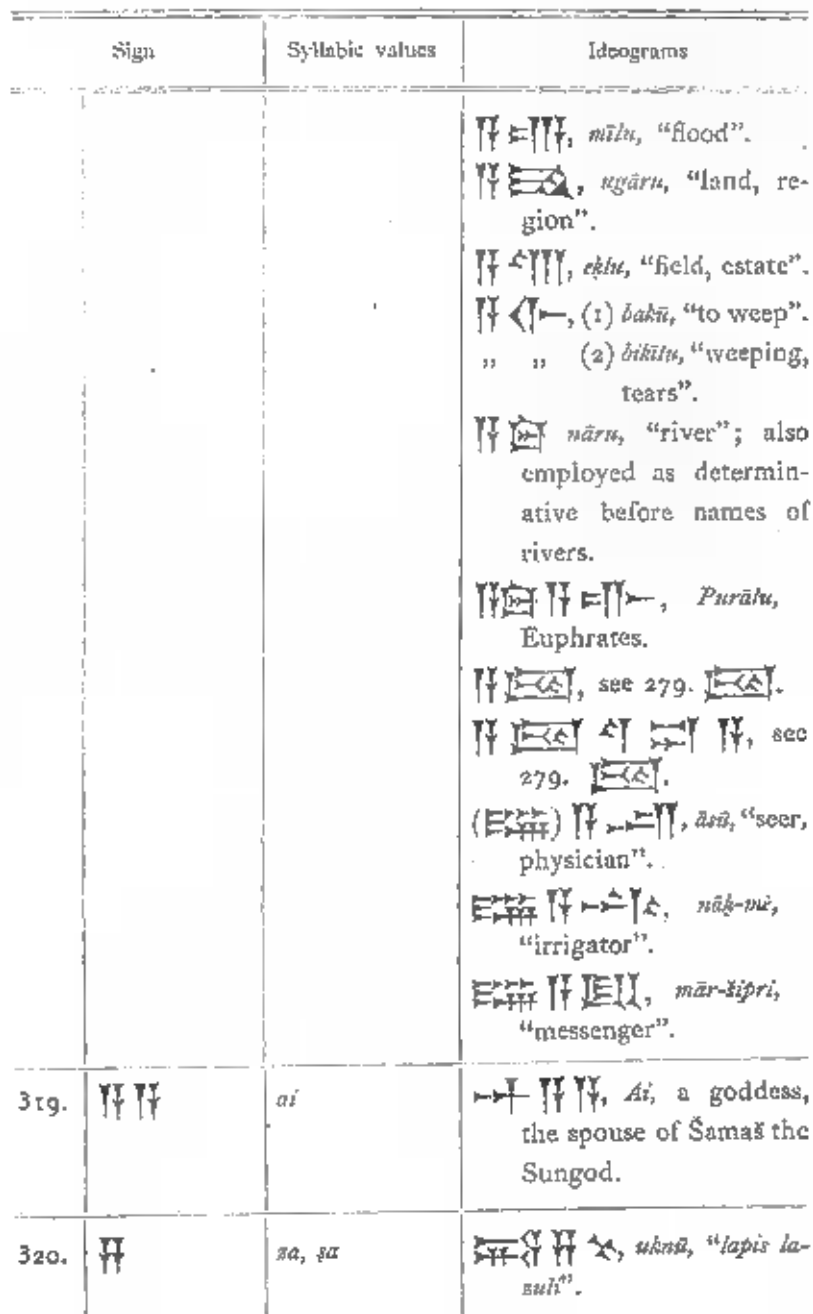 Sign Syllabic values Ideograms
mīlu, "flood".
ugāru, "land, re-
gion".
eḳlu, "field, estate".
(1) bakū, "to weep".
,, ,, (2) bikītu, "weeping,
tears".
nāru, "river"; also
employed as determin-
ative before names of
rivers.
Purātu,
Euphrates.
see 279.
see
279.
āsū, "seer,
physician".
nāḳ-mê,
"irrigator".
mār-šipri,
"messenger".
319. 𒀀 𒀀 ai 𒀭 𒀀 𒀀, Ai, a goddess,
the spouse of Šamaš the
Sungod.
320. 𒍝 za, ṣa uknū, "lapis la-
zuli".